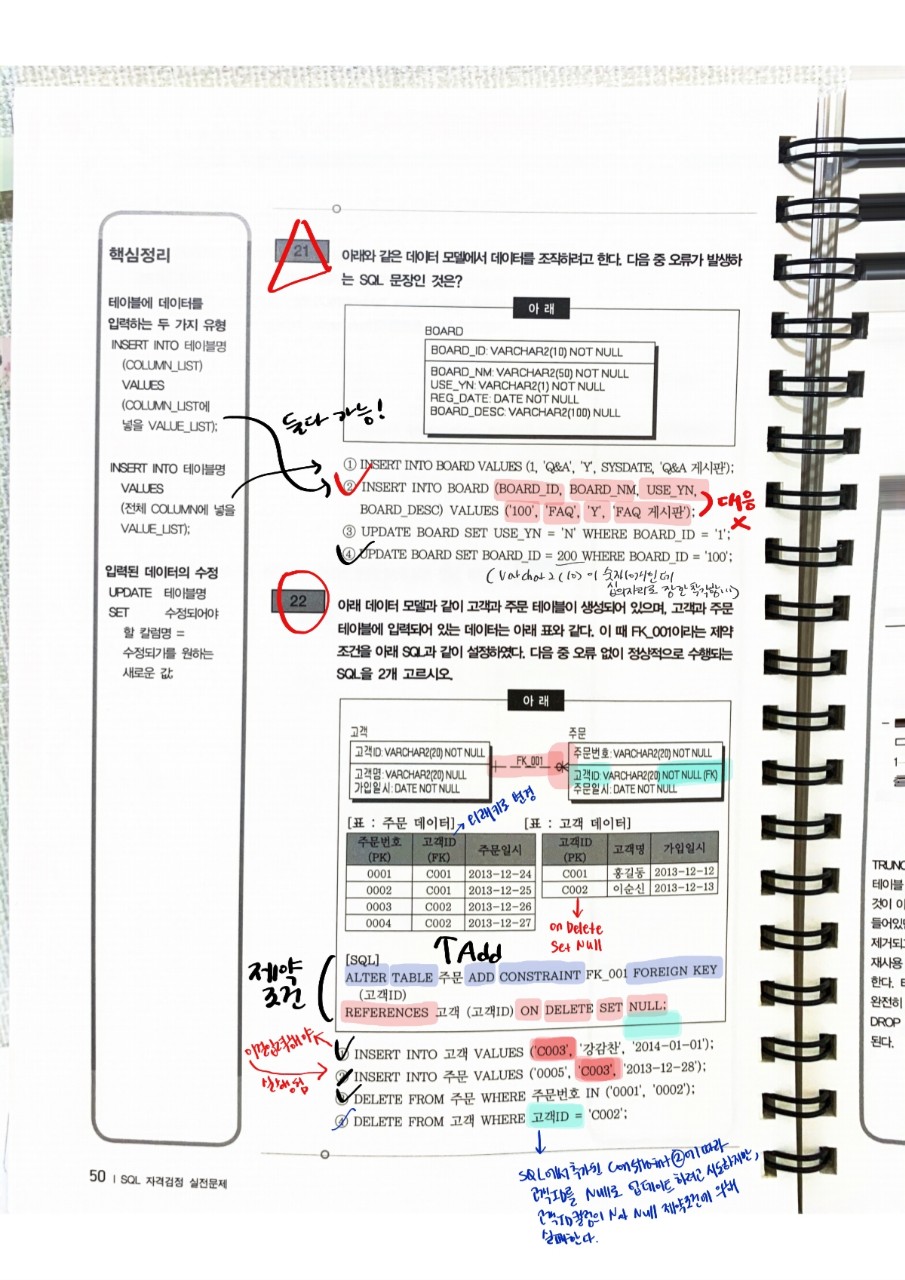 핵심정리
테이블에 데이터를
입력하는 두 가지 유형
INSERT INTO 테이블명
(COLUMN_LIST)
VALUES
(COLUMN_LIST에
넣을 VALUE_LIST);
INSERT INTO 테이블명
VALUES
(전체 COLUMN에 넣을
VALUE_LIST);
입력된 데이터의 수정
UPDATE 테이블명
SET 수정되어야
할 칼럼명 =
수정되기를 원하는
새로운 값;
둘다 가능!
21 아래와 같은 데이터 모델에서 데이터를 조작하려고 한다. 다음 중 오류가 발생하
는 SQL 문장인 것은?
아 래
BOARD
BOARD_ID: VARCHAR2(10) NOT NULL
BOARD_NM: VARCHAR2(50) NOT NULL
USE_YN: VARCHAR2(1) NOT NULL
REG_DATE: DATE NOT NULL
BOARD_DESC: VARCHAR2(100) NULL
① INSERT INTO BOARD VALUES (1, 'Q&A', 'Y', SYSDATE, 'Q&A 게시판');
② INSERT INTO BOARD (BOARD_ID, BOARD_NM, USE_YN,
BOARD_DESC) VALUES ('100', 'FAQ', 'Y', 'FAQ 게시판');
대응
X
③ UPDATE BOARD SET USE_YN = 'N' WHERE BOARD_ID = '1';
④ UPDATE BOARD SET BOARD_ID = 200 WHERE BOARD_ID = '100';
(Varchar2(10)이 숫자10개인데
22 아래 데이터 모델과 같이 고객과 주문 테이블이 생성되어 있으며, 고객과 주문
테이블에 입력되어 있는 데이터는 아래 표와 같다. 이 때 FK_001이라는 제약
조건을 아래 SQL과 같이 설정하였다. 다음 중 오류 없이 정상적으로 수행되는
SQL을 2개 고르시오.
아 래
고객
고객ID: VARCHAR2(20) NOT NULL
고객명: VARCHAR2(20) NULL
가입일시: DATE NOT NULL
FK_001
주문
주문번호: VARCHAR2(20) NOT NULL
고객ID: VARCHAR2(20) NOT NULL (FK)
주문일시: DATE NOT NULL
외래키로 변경
[표 : 주문 데이터] [표 : 고객 데이터]
주문번호 (PK) 고객ID (FK) 주문일시
0001 C001 2013-12-24
0002 C001 2013-12-25
0003 C002 2013-12-26
0004 C002 2013-12-27
고객ID (PK) 고객명 가입일시
C001 홍길동 2013-12-12
C002 이순신 2013-12-13
on Delete
Set Null
Add
제약
조건
[SQL]
ALTER TABLE 주문 ADD CONSTRAINT FK_001 FOREIGN KEY
(고객ID)
REFERENCES 고객 (고객ID) ON DELETE SET NULL;
① INSERT INTO 고객 VALUES ('C003', '강감찬', '2014-01-01');
② INSERT INTO 주문 VALUES ('0005', 'C003', '2013-12-28');
③ DELETE FROM 주문 WHERE 주문번호 IN ('0001', '0002');
④ DELETE FROM 고객 WHERE 고객ID = 'C002';
SQL에서 추가된 Constraint②에 따라
고객ID를 Null로 업데이트하려고 시도하지만,
고객ID칼럼의 Not Null 제약조건에 의해
실패한다.
50 | SQL 자격검정 실전문제
TRUNC
테이블
것이 이
들어있
제거되고
재사용
한다.
완전히
DROP
된다.